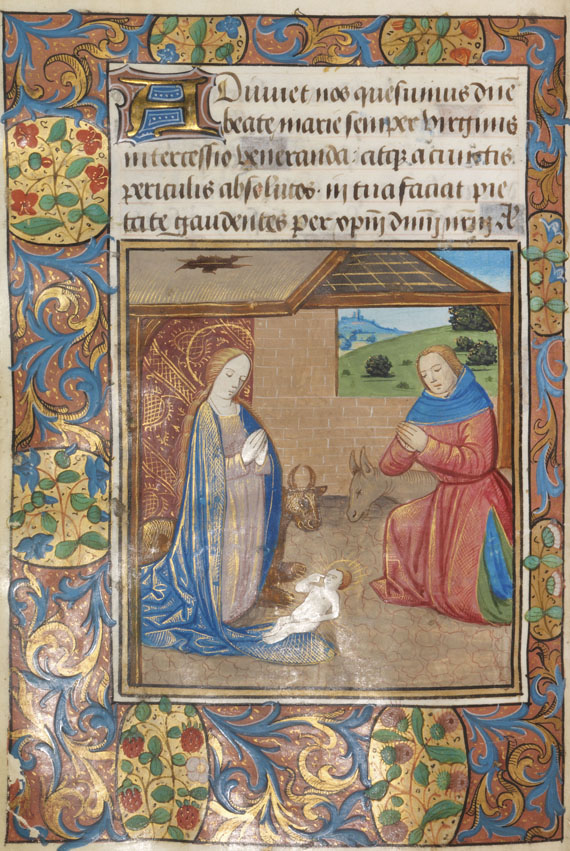 Adiuuet nos quesumus dn̄e
beate marie semper virginis
intercessio veneranda: atq; a cunctis
periculis absolutos· in tua faciat pie
tate gaudentes per xp̄m dn̄m nr̄m